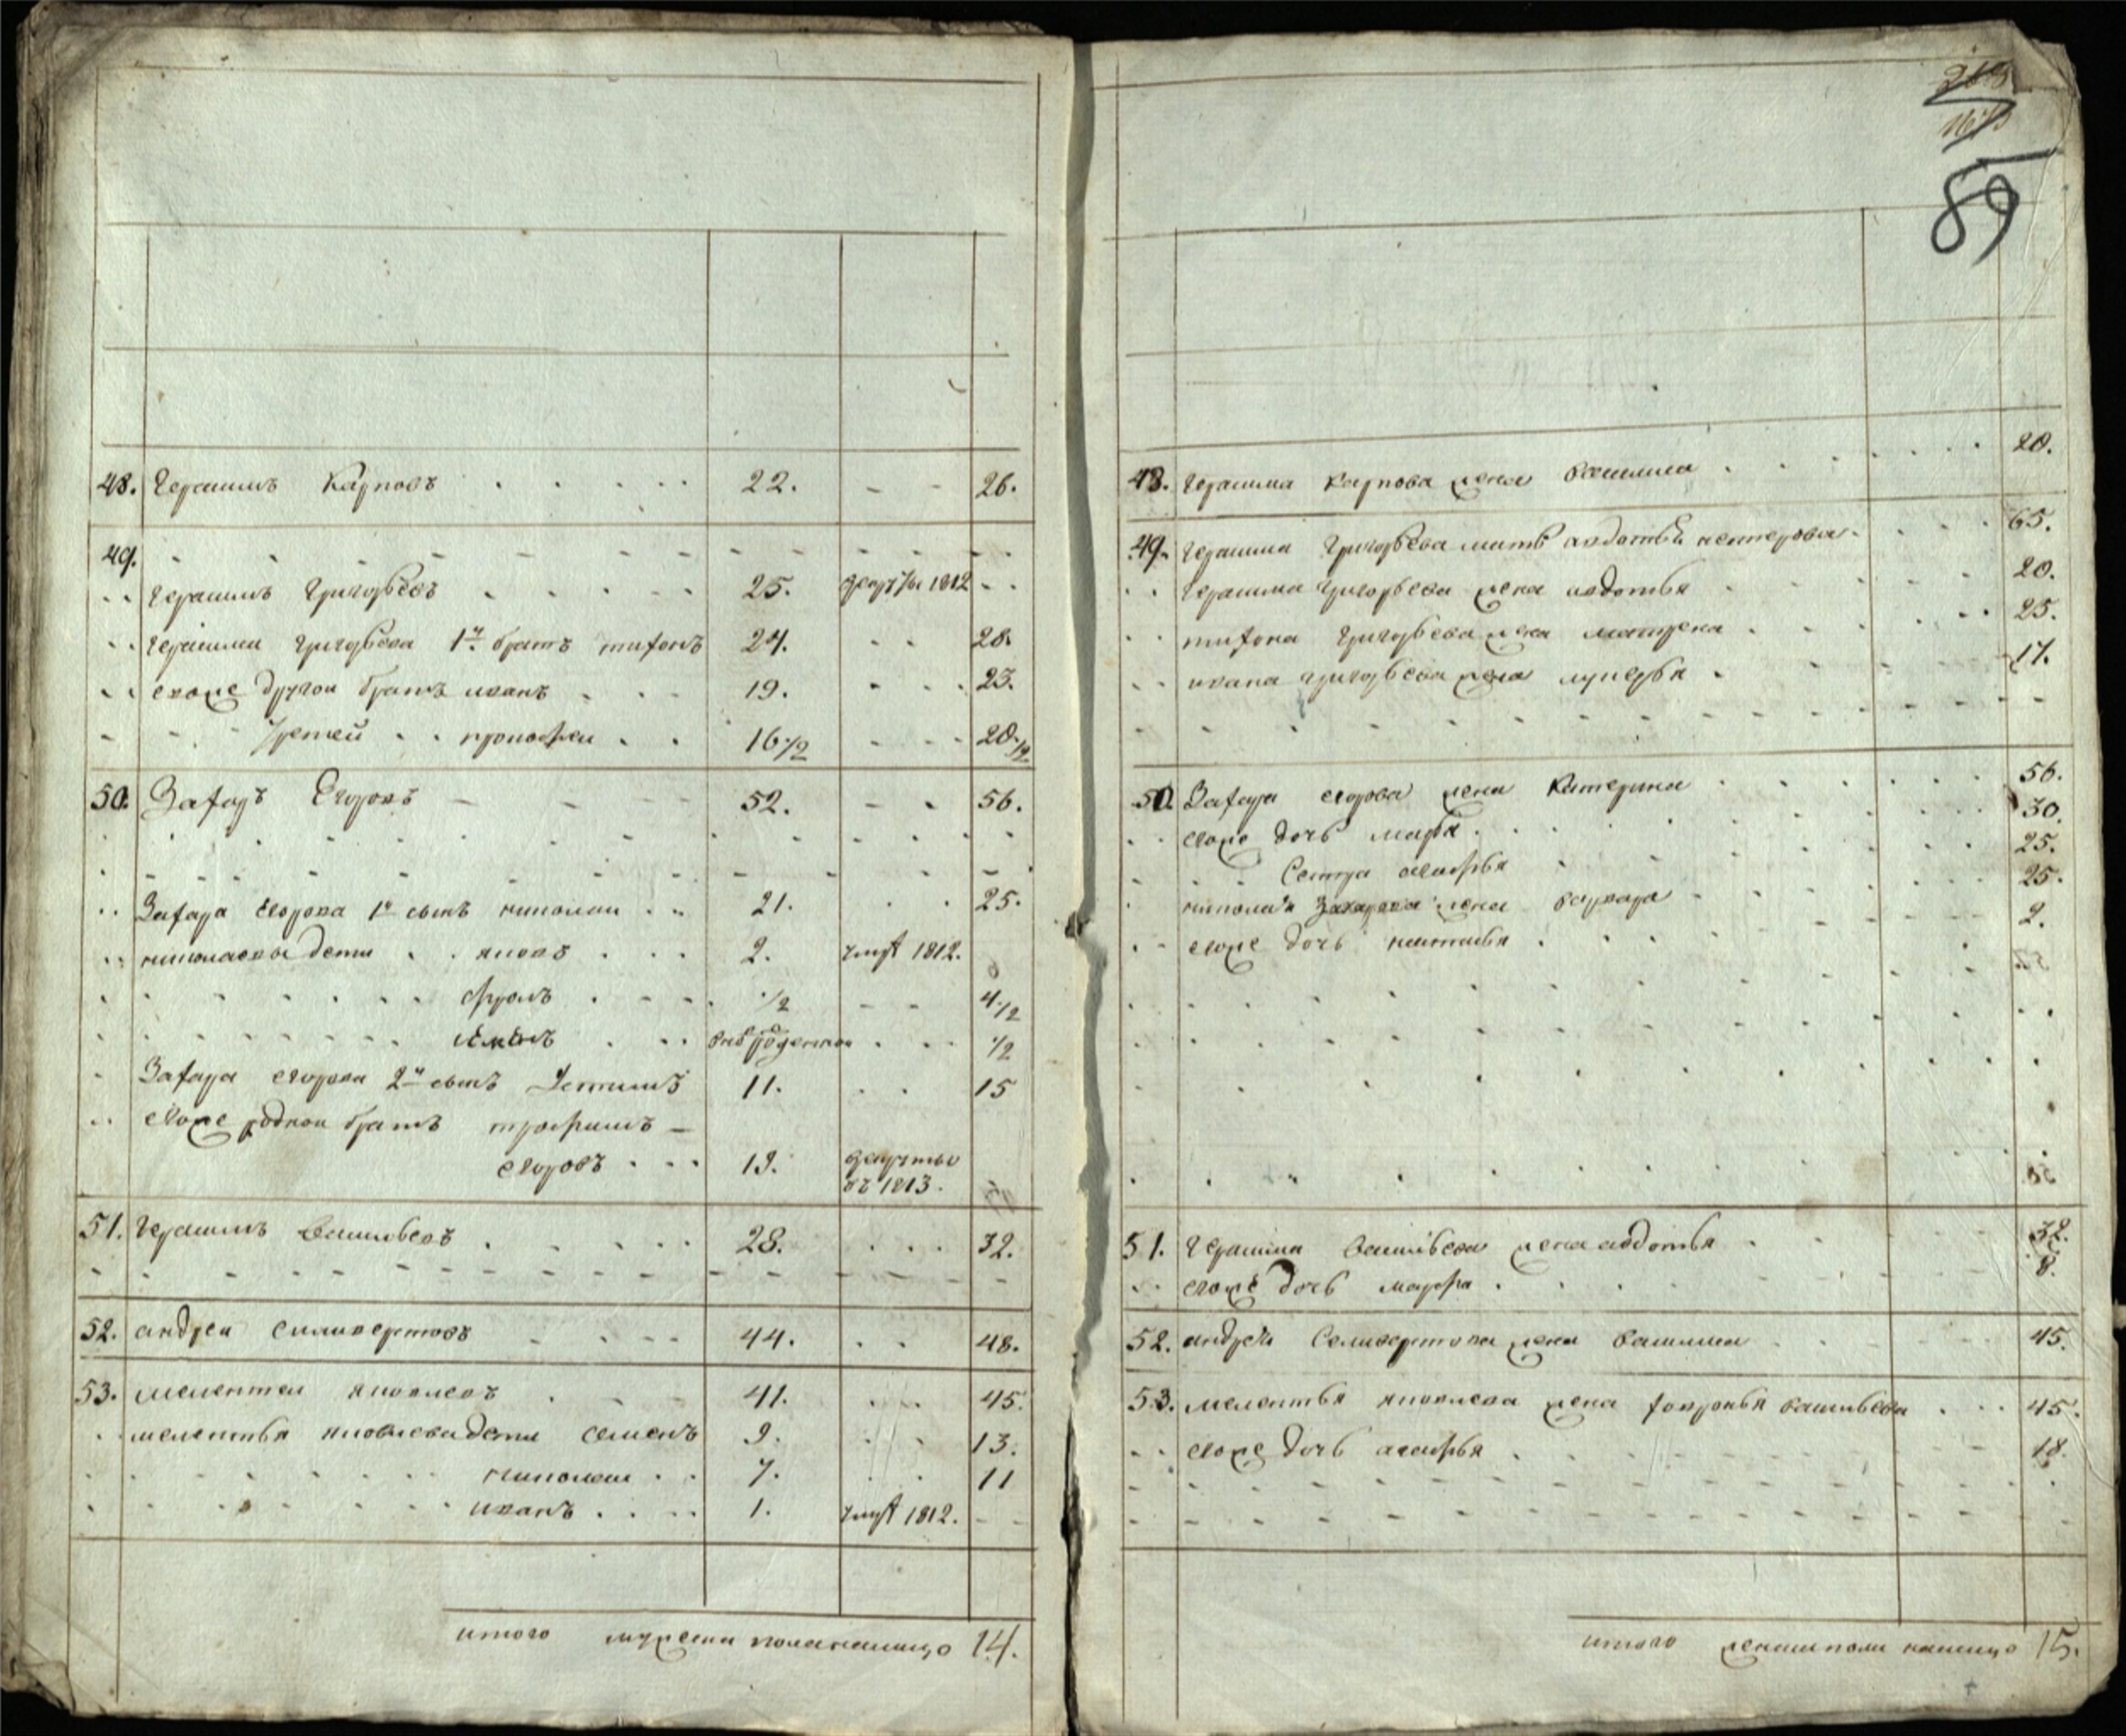 48. Герасимъ Карповъ 22. 26.
49.
Герасимъ Григорьевъ 25. 1812
Герасима Григорьева 1й братъ тихонъ 24. 28.
ево же другои братъ иванъ 19. 23.
третей прокофеи 16 1/2 20 1/2
50. Захаръ Егоровъ 52. 56.
Захара Егорова 1й сынъ николаи 21. 25.
николаевы дети яковъ 2. умре 1812.
фролъ 1/2 4 1/2
1/2
Захара егорова 2й сынъ 11. 15
ево же роднои братъ трофимъ
егоровъ 19.
въ 1813.
51. Герасимъ Васильевъ 28. 32.
52. андреи силивертовъ 44. 48.
53. мелентеи яковлевъ 41. 45.
мелентья яковлева дети семенъ 9. 13.
николаи 7. 11
иванъ 1. умре 1812.
итого мужеска пола налицо 14.
89
48. Герасима карпова жена василиса 20.
49. Герасима Григорьева мать авдотья нестерова 65.
Герасима григорьева жена авдотья 20.
тихона григорьева жена матрена 25.
ивана григорьева жена лукерья 17.
50. Захара егорова жена катерина 56.
ево же дочь марья 30.
Сестра 25.
николая Захарова жена варвара 25.
ево же дочь наталья 2.
51. Герасима васильева жена авдотья 32.
ево же дочь марфа 8.
52. андрея Селивертова жена василиса 45.
53. мелентья яковлева жена ховронья васильева 45.
ево же дочь агафья 18.
итого женска пола налицо 15.